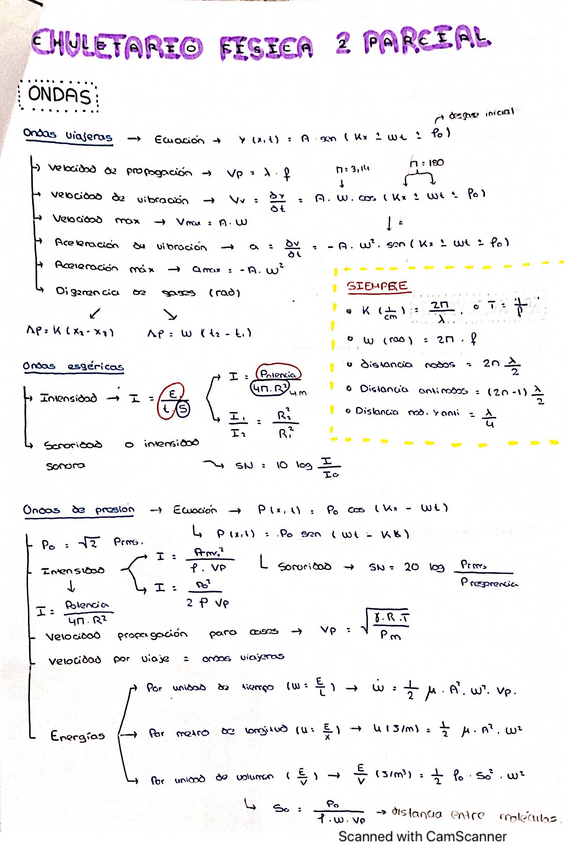 CHULETARIO FÍSICA 2 PARCIAL
ONDAS
Ondas viajeras → Ecuación → y (x,t) = A · sen ( Kx ± wt ± ρo)
→ desfase inicial
→ Velocidad de propagación → Vp = λ · f
π = 3,14
π = 180
→ Velocidad de vibración → Vv = ∂y/∂t = A · w · cos ( Kx ± wt ± ρo)
→ Velocidad max → Vmax = A · w
→ Aceleración de vibración → a = ∂v/∂t = - A · w² · sen ( Kx ± wt ± ρo)
→ Aceleración máx → amax = - A · w²
→ Diferencia de fases (rad)
Δρ = K (x₂ - x₁) Δρ = w (t₂ - t₁)
SIEMPRE
• K (1/cm) = 2π/λ • T = 1/f
• w (rad) = 2π · f
• distancia nodos = 2n λ/2
• Distancia antinodos = (2n-1) λ/2
• Distancia nod. y anti = λ/4
Ondas esféricas
→ Intensidad → I = E/t·S
→ I = Potencia/4π·R² 4m
→ I₁/I₂ = R₂²/R₁²
→ Sonoridad o intensidad
sonora → SN = 10 log I/Io
Ondas de presión → Ecuación → P (x,t) = Po cos (Kx - wt)
↳ P (x,t) = Po sen ( wt - Kx)
Po = √2 Prms.
Intensidad → I = Prms²/ρ · VP
→ I = Po²/2 ρ VP
↳ Sonoridad → SN = 20 log Prms/P referencia
I = Potencia/4π·R²
Velocidad propagación para gases → VP = √(γ·R·T/Pm)
Velocidad por viaje = ondas viajeras
Energías
→ Por unidad de tiempo (W = E/t) → ẇ = 1/2 μ · A² · w² · Vp.
→ Por metro de longitud (u = E/x) → u (J/m) = 1/2 μ · A² · w²
→ Por unidad de volumen (E/V) → E/V (J/m³) = 1/2 ρo · So² · w²
↳ So = Po/ρ·w·VP → distancia entre moléculas.
Scanned with CamScanner